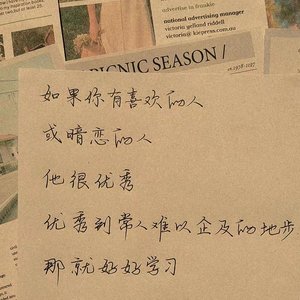 advertise in frankie
national advertising manager
victoria gelland riddell
victoria@kiepress.com.au
PICNIC SEASON /
如果你有喜欢的人
或暗恋的人
他很优秀
优秀到常人难以企及的地步
那就好好学习